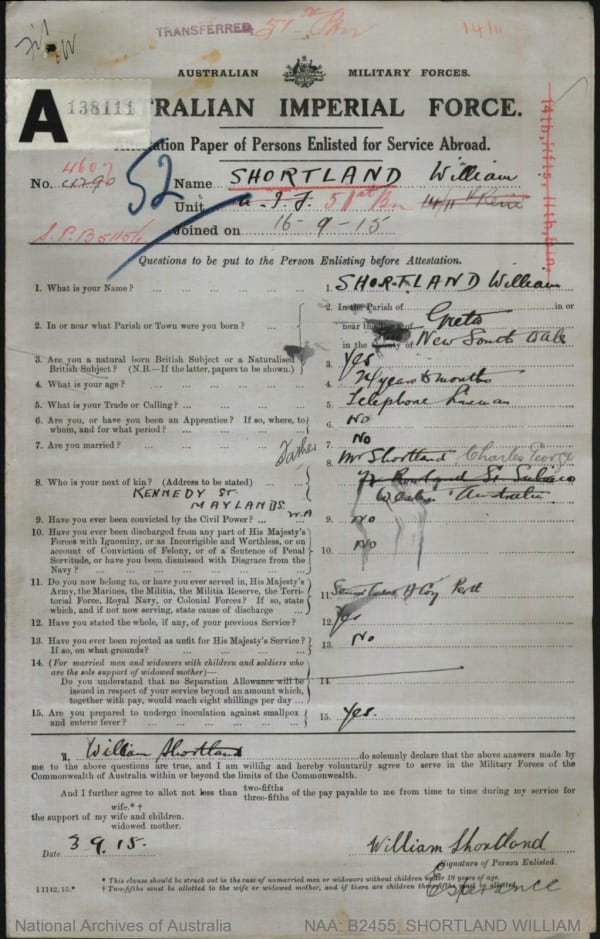 TRANSFERRED 51st Bn
14/11
AUSTRALIAN MILITARY FORCES.
A 138111
TRALIAN IMPERIAL FORCE.
tion Paper of Persons Enlisted for Service Abroad.
No. 4607 4290
52
Name SHORTLAND William
Unit A.I.F. 51st Bn 14/11th Rein
Joined on 16-9-15
Questions to be put to the Person Enlisting before Attestation.
1. What is your Name? 1. SHORTLAND William
2. In or near what Parish or Town were you born? 2. In the Parish of in or
near the of Greta
in the County of New South Wale
3. Are you a natural born British Subject or a Naturalised
British Subject? (N.B.—If the latter, papers to be shown.) 3. Yes
4. What is your age? 4. 24 years 6 months
5. What is your Trade or Calling? 5. Telephone Lineman
6. Are you, or have you been an Apprentice? If so, where, to
whom, and for what period? 6. No
7. Are you married? 7. No
Father
8. Who is your next of kin? (Address to be stated) 8. Mr Shortland Charles George
Rowland St Subiaco
Western Australia
KENNEDY ST.
MAYLANDS
W.A
9. Have you ever been convicted by the Civil Power? 9. No
10. Have you ever been discharged from any part of His Majesty's
Forces with Ignominy, or as Incorrigible and Worthless, or on
account of Conviction of Felony, or of a Sentence of Penal
Servitude, or have you been dismissed with Disgrace from the
Navy? 10. No
11. Do you now belong to, or have you ever served in, His Majesty's
Army, the Marines, the Militia, the Militia Reserve, the Terri-
torial Force, Royal Navy, or Colonial Forces? If so, state
which, and if not now, serving, state cause of discharge 11. Coy Perth
12. Have you stated the whole, if any, of your previous Service? 12. Yes
13. Have you ever been rejected as unfit for His Majesty's Service?
If so, on what grounds? 13. No
14. (For married men and widowers with children and soldiers who
are the sole support of widowed mother)—
Do you understand that no Separation Allowance will be
issued in respect of your service beyond an amount which,
together with pay, would reach eight shillings per day 14.
15. Are you prepared to undergo inoculation against smallpox
and enteric fever? 15. Yes.
I, William Shortland do solemnly declare that the above answers made by
me to the above questions are true, and I am willing and hereby voluntarily agree to serve in the Military Forces of the
Commonwealth of Australia within or beyond the limits of the Commonwealth.
And I further agree to allot not less than two-fifths three-fifths of the pay payable to me from time to time during my service for
wife.* †
the support of my wife and children.
widowed mother.
Date 3 9. 15.
William Shortland
Signature of Person Enlisted.
Esperance
* This clause should be struck out in the case of unmarried men or widowers without children under 18 years of age.
† Two-fifths must be allotted to the wife or widowed mother, and if there are children three-fifths must be allotted.
§ 1142, 15.*
National Archives of Australia
NAA: B2455, SHORTLAND WILLIAM